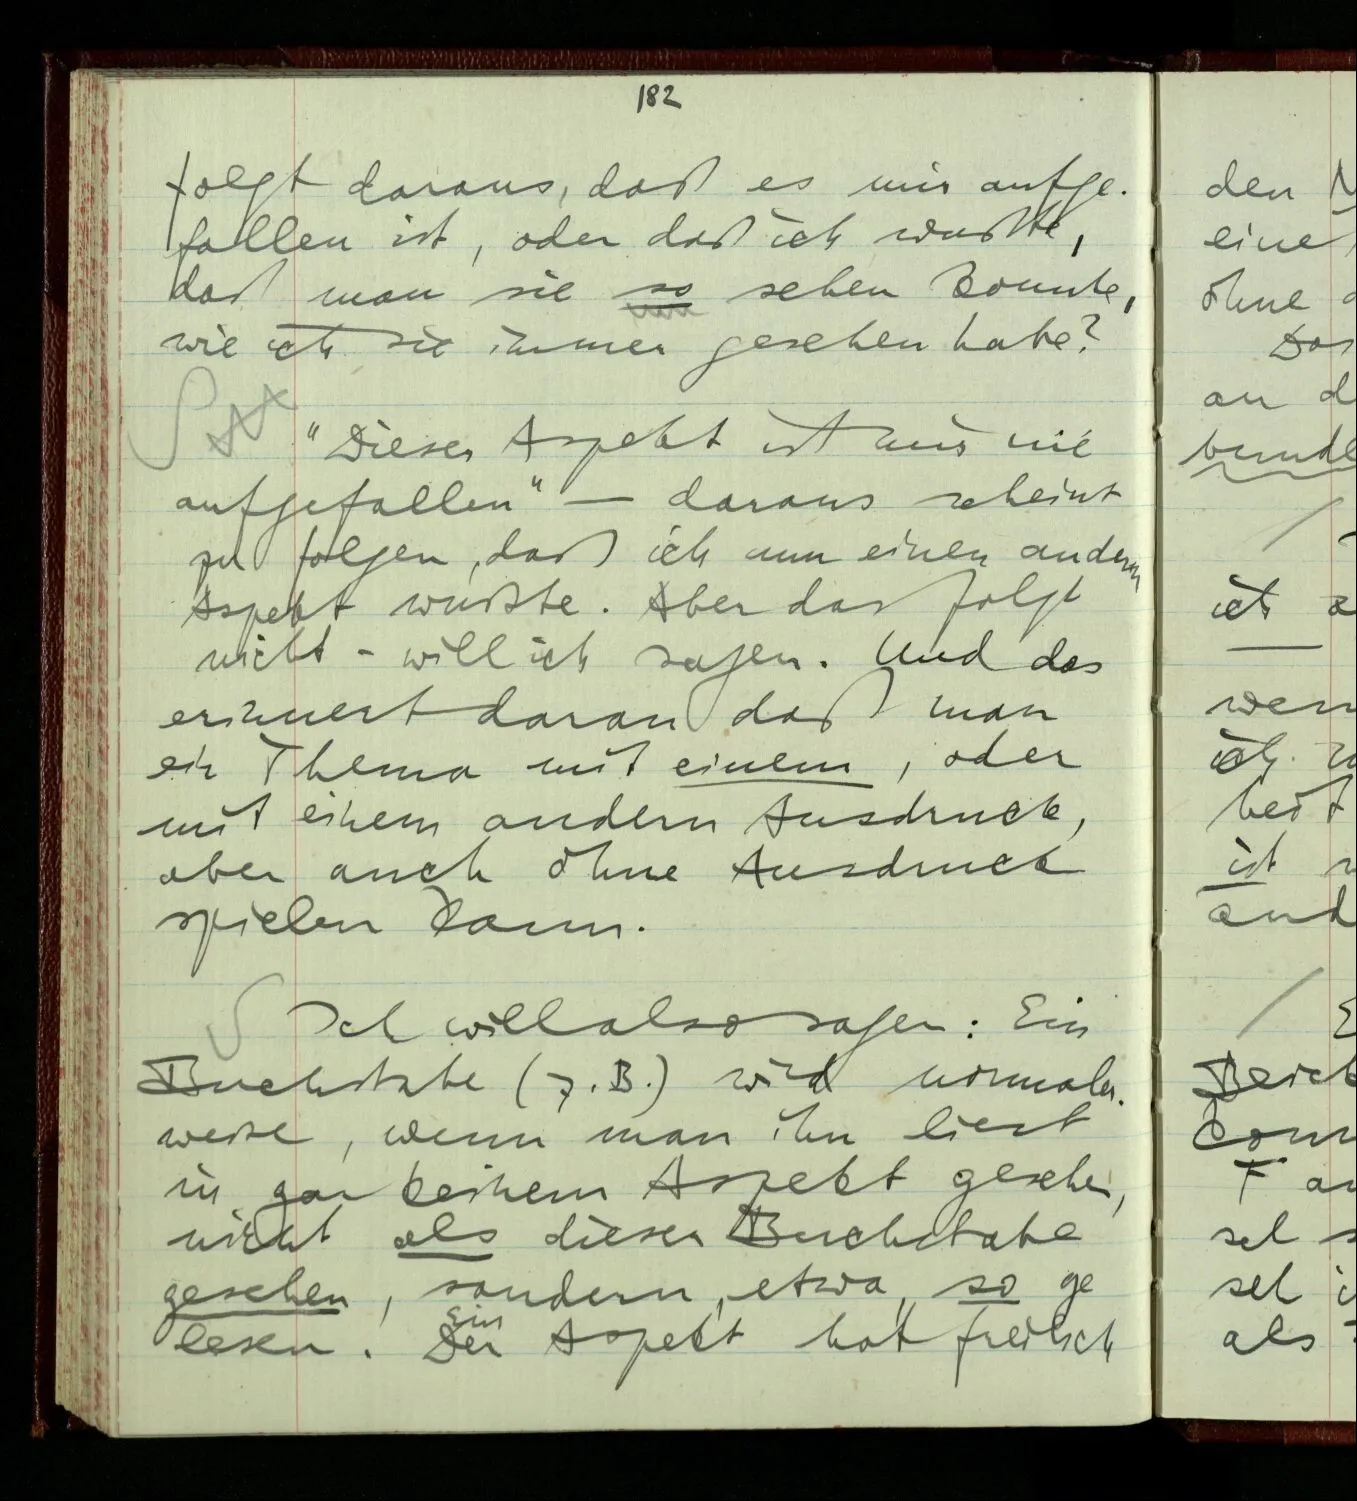 182
folgt daraus, daß es mir aufge-
fallen ist, oder daß ich wußte,
daß man sie so sehen konnte,
wie ich sie immer gesehen habe?
"Dieser Aspekt ist mir nie
aufgefallen" — daraus scheint
zu folgen, daß ich nun einen andern
Aspekt wußte. Aber das folgt
nicht - will ich sagen. Und das
erinnert daran daß man
ein Thema mit einem, oder
mit einem andern Ausdruck,
aber auch ohne Ausdruck
spielen kann.
Ich will also sagen: Ein
Buchstabe (z.B.) wird normaler-
weise, wenn man ihn liest
in gar keinem Aspekt gesehen,
nicht als dieser Buchstabe
gesehen, sondern, etwa, so ge
lesen. Der Ein Aspekt hat freilich
den
eine
ohne
Das
an d
ich
wen
ich
heit
ist
and
sel
sel
als